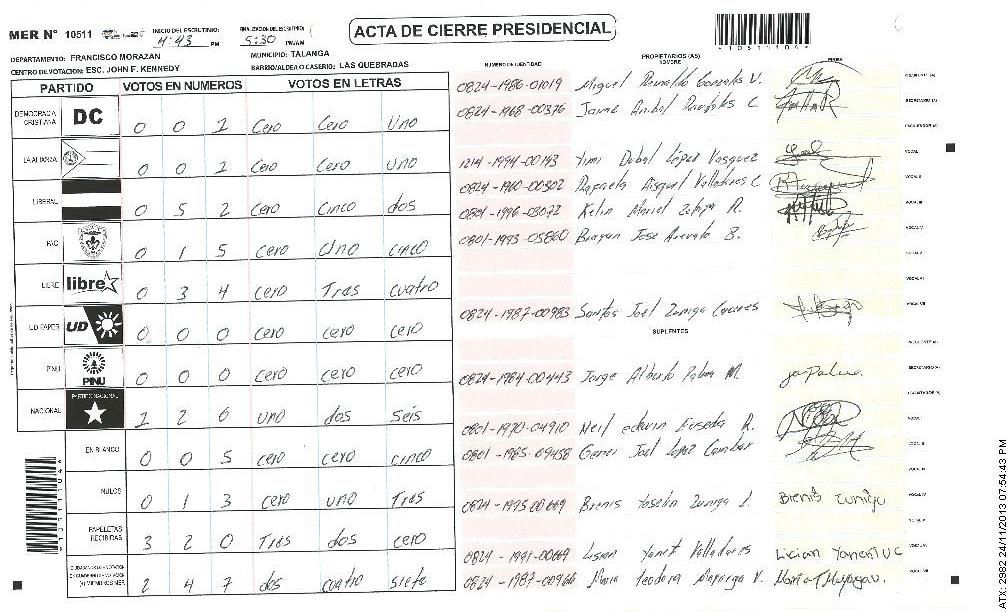 ACTA DE CIERRE PRESIDENCIAL
MER N° 10511
INICIO DEL ESCRUTINIO: 4:43 PM
FINALIZACION DEL ESCRUTINIO: 5:30 PM/AM
*1051110 4*
DEPARTAMENTO: FRANCISCO MORAZAN
MUNICIPIO: TALANGA
CENTRO DE VOTACION: ESC. JOHN F. KENNEDY
BARRIO/ALDEA O CASERIO: LAS QUEBRADAS
PARTIDO VOTOS EN NUMEROS VOTOS EN LETRAS
DEMOCRACIA CRISTIANA DC 0 0 1 Cero Cero Uno
LA ALIANZA 0 0 1 Cero Cero uno
LIBERAL 0 5 2 Cero Cinco dos
PAC 0 1 5 Cero Uno Cinco
LIBRE libre 0 3 4 cero Tres cuatro
UD FAPER UD 0 0 0 cero cero cero
PINU PINU 0 0 0 cero cero cero
NACIONAL PARTIDO NACIONAL 1 2 6 uno dos seis
EN BLANCO 0 0 5 cero cero cinco
NULOS 0 1 3 cero uno Tres
PAPELETAS RECIBIDAS 3 2 0 Tres dos cero
2 4 7 dos cuatro siete
NUMERO DE IDENTIDAD
PROPIETARIOS (AS)
NOMBRE
FIRMA
0824-1986-01019 Miguel Gonzales V. PRESIDENTE (A)
0824-1968-00376 Jaime Anibal C. SECRETARIO (A)
ESCRUTADOR (A)
1214-1994-00193 Yimi Dubal López Vasquez VOCAL I
0824-1960-00302 Rafaela Valladares C. VOCAL II
0801-1996-03072 Kelin Mariel Zelaya R. VOCAL III
0801-1993-05860 Brayan Jose Acevedo B. VOCAL IV
VOCAL V
VOCAL VI
0824-1987-00983 Santos Joel Zuniga VOCAL VII
SUPLENTES
PRESIDENTE (A)
0824-1984-00443 Jorge Alberto Palma M. SECRETARIO (A)
ESCRUTADOR (A)
0801-1970-04910 Neil edwin R. VOCAL I
0801-1985-09458 Gener Joel López VOCAL II
VOCAL III
0824-1995-00669 Brenis Yoselin Zuniga Z. Brenis Zuniga VOCAL IV
VOCAL V
0824-1991-00669 Yanet Valladares VOCAL VI
0824-1987-00966 Maria Teodora V. VOCAL VII
ATX 2982 24/11/2013 07:54:43 PM